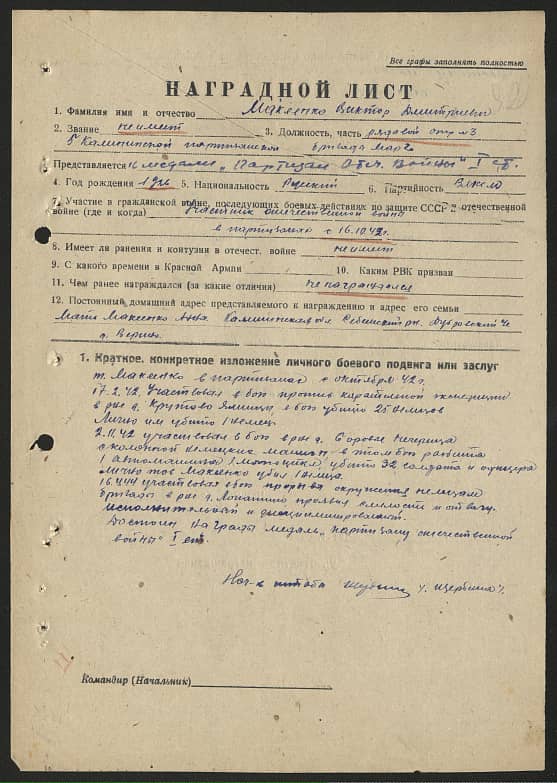 Все графы заполнять полностью
НАГРАДНОЙ ЛИСТ
1. Фамилия имя и отчество Макеенко Виктор Дмитриевич
2. Звание не имеет 3. Должность, часть рядовой отр №3
5 Калининской партизанской бригады
Представляется к медали "Партизан Отеч. Войны" I ст.
4. Год рождения 5. Национальность Русский 6. Партийность
7. Участие в гражданской войне, последующих боевых действиях по защите СССР в отечественной
войне (где и когда) Участник отечественной войны
в партизанах с 16.10.42г.
8. Имеет ли ранения и контузии в отечест. войне не имеет
9. С какого времени в Красной Армии 10. Каким РВК призван
11. Чем ранее награждался (за какие отличия) не награждался
12. Постоянный домашний адрес представляемого к награждению и адрес его семьи
Мать Макеенко Анна. Калининская обл Себежский рн. Дубровский
д.
1. Краткое, конкретное изложение личного боевого подвига или заслуг
т. Макеенко в партизанах с октября 42г.
17.2.42. Участвовал в бою против карательной экспедиции
в р-не д. Крутово в бою убито 25 немцев
Лично им убит 1 немец.
2.11.42 участвовал в бою в р-не д.
с колонной немецких машин, в этом бою разбита
1 автомашина 1 мотоцикл убито 32 солдата и офицера
Лично тов Макеенко убил 1 немца.
16.4.44 участвовал в бою прорыва окружения немцами
бригады в р-не д. проявил смелость и отвагу.
исполнительный и дисциплинирован.
Достоин награды медаль "партизану отечественной
войны" I ст.
Нач-к штаба /Щербина/.
Командир (Начальник)